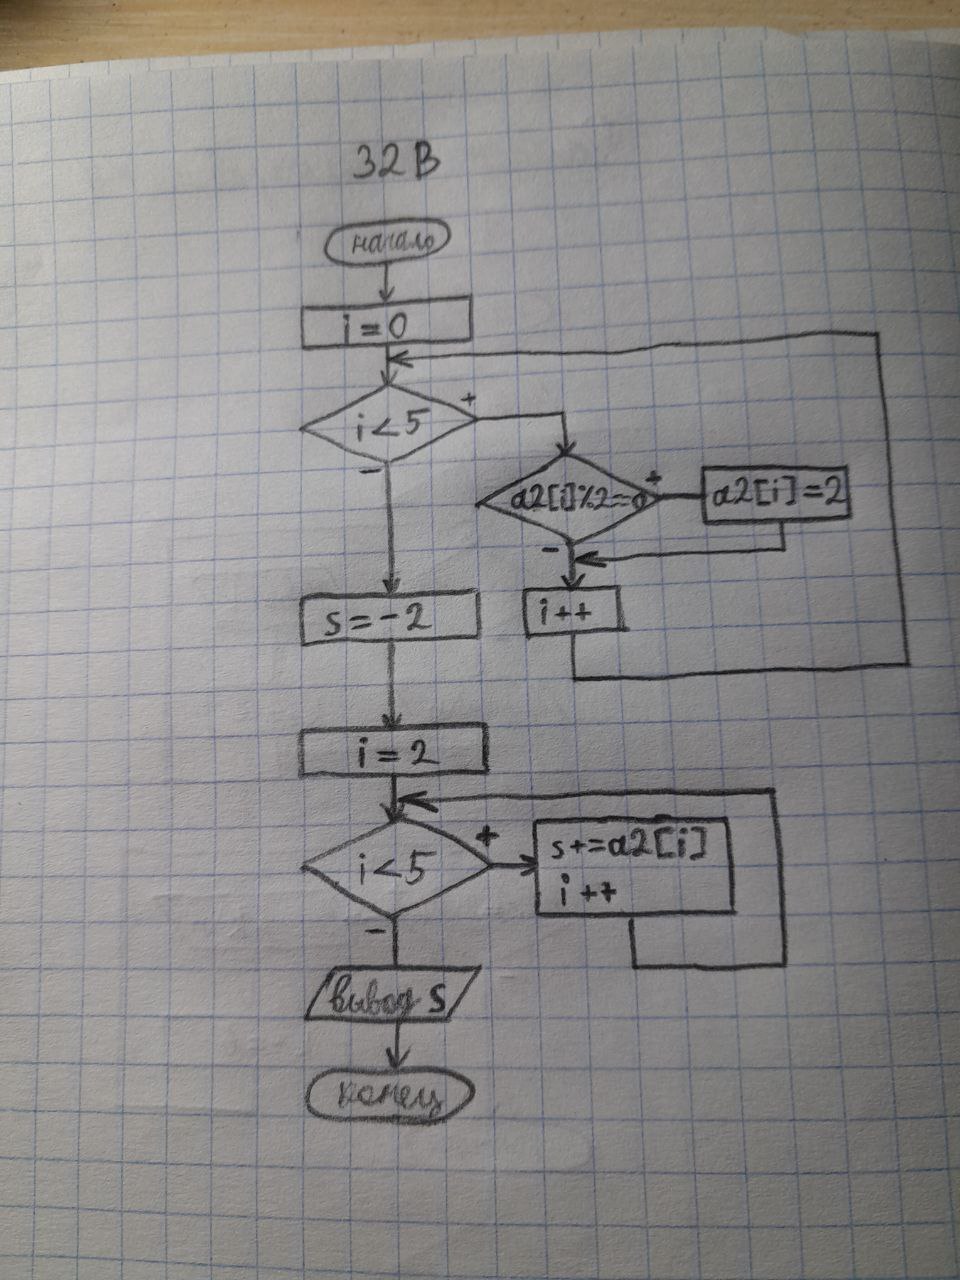 32В
начало
i = 0
i < 5
+
-
a2[i]%2==0
+
-
a2[i]=2
i++
s = -2
i = 2
i < 5
+
-
s+=a2[i]
i++
вывод s
конец